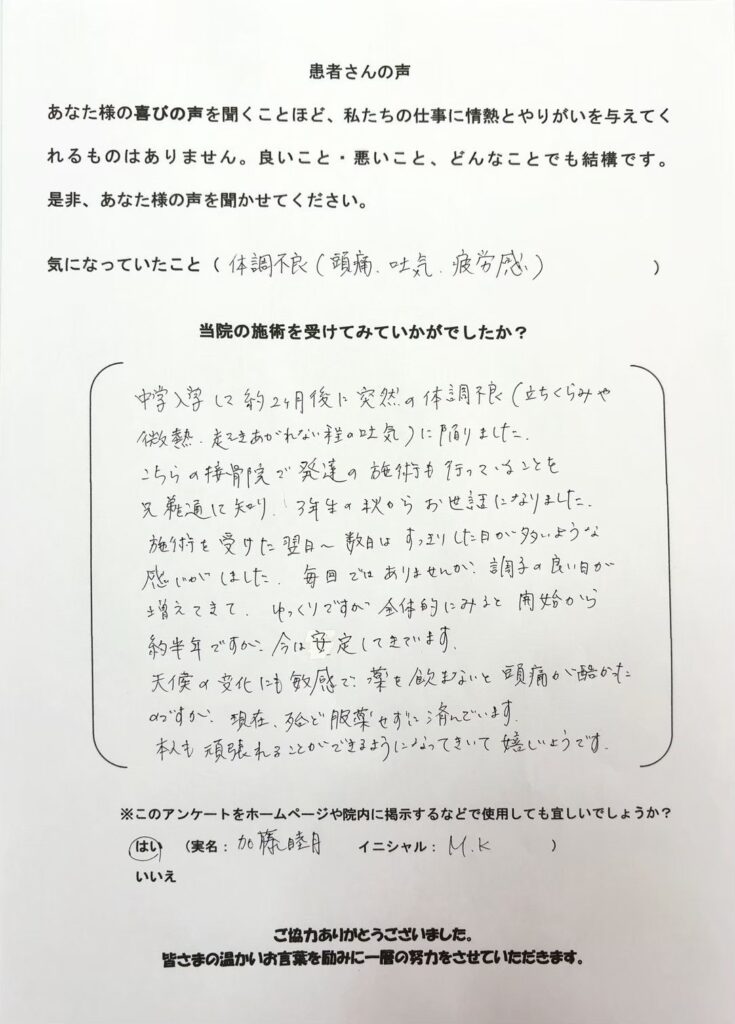 患者さんの声
あなた様の喜びの声を聞くことほど、私たちの仕事に情熱とやりがいを与えてく
れるものはありません。良いこと・悪いこと、どんなことでも結構です。
是非、あなた様の声を聞かせてください。
気になっていたこと（ 体調不良(頭痛、吐気、疲労感) ）
当院の施術を受けてみていかがでしたか？
中学入学して約2ヶ月後に突然の体調不良(立ちくらみや
微熱、起きあがれない程の吐気)に陥りました。
こちらの接骨院で発達の施術も行っていることを
兄弟通して知り、3年生の秋からお世話になりました。
施術を受けた翌日～数日はすっきりした日が多いような
感じがしました。毎回ではありませんが、調子の良い日が
増えてきて、ゆっくりですが全体的にみると開始から
約半年ですが、今は安定してきています。
天候の変化にも敏感で、薬を飲まないと頭痛が酷かった
のですが、現在、殆ど服薬せずに済んでいます。
本人も頑張れることができるようになってきていて嬉しいようです。
※このアンケートをホームページや院内に掲示するなどで使用しても宜しいでしょうか？
はい （実名： 加藤睦月 イニシャル： M.K ）
いいえ
ご協力ありがとうございました。
皆さまの温かいお言葉を励みに一層の努力をさせていただきます。